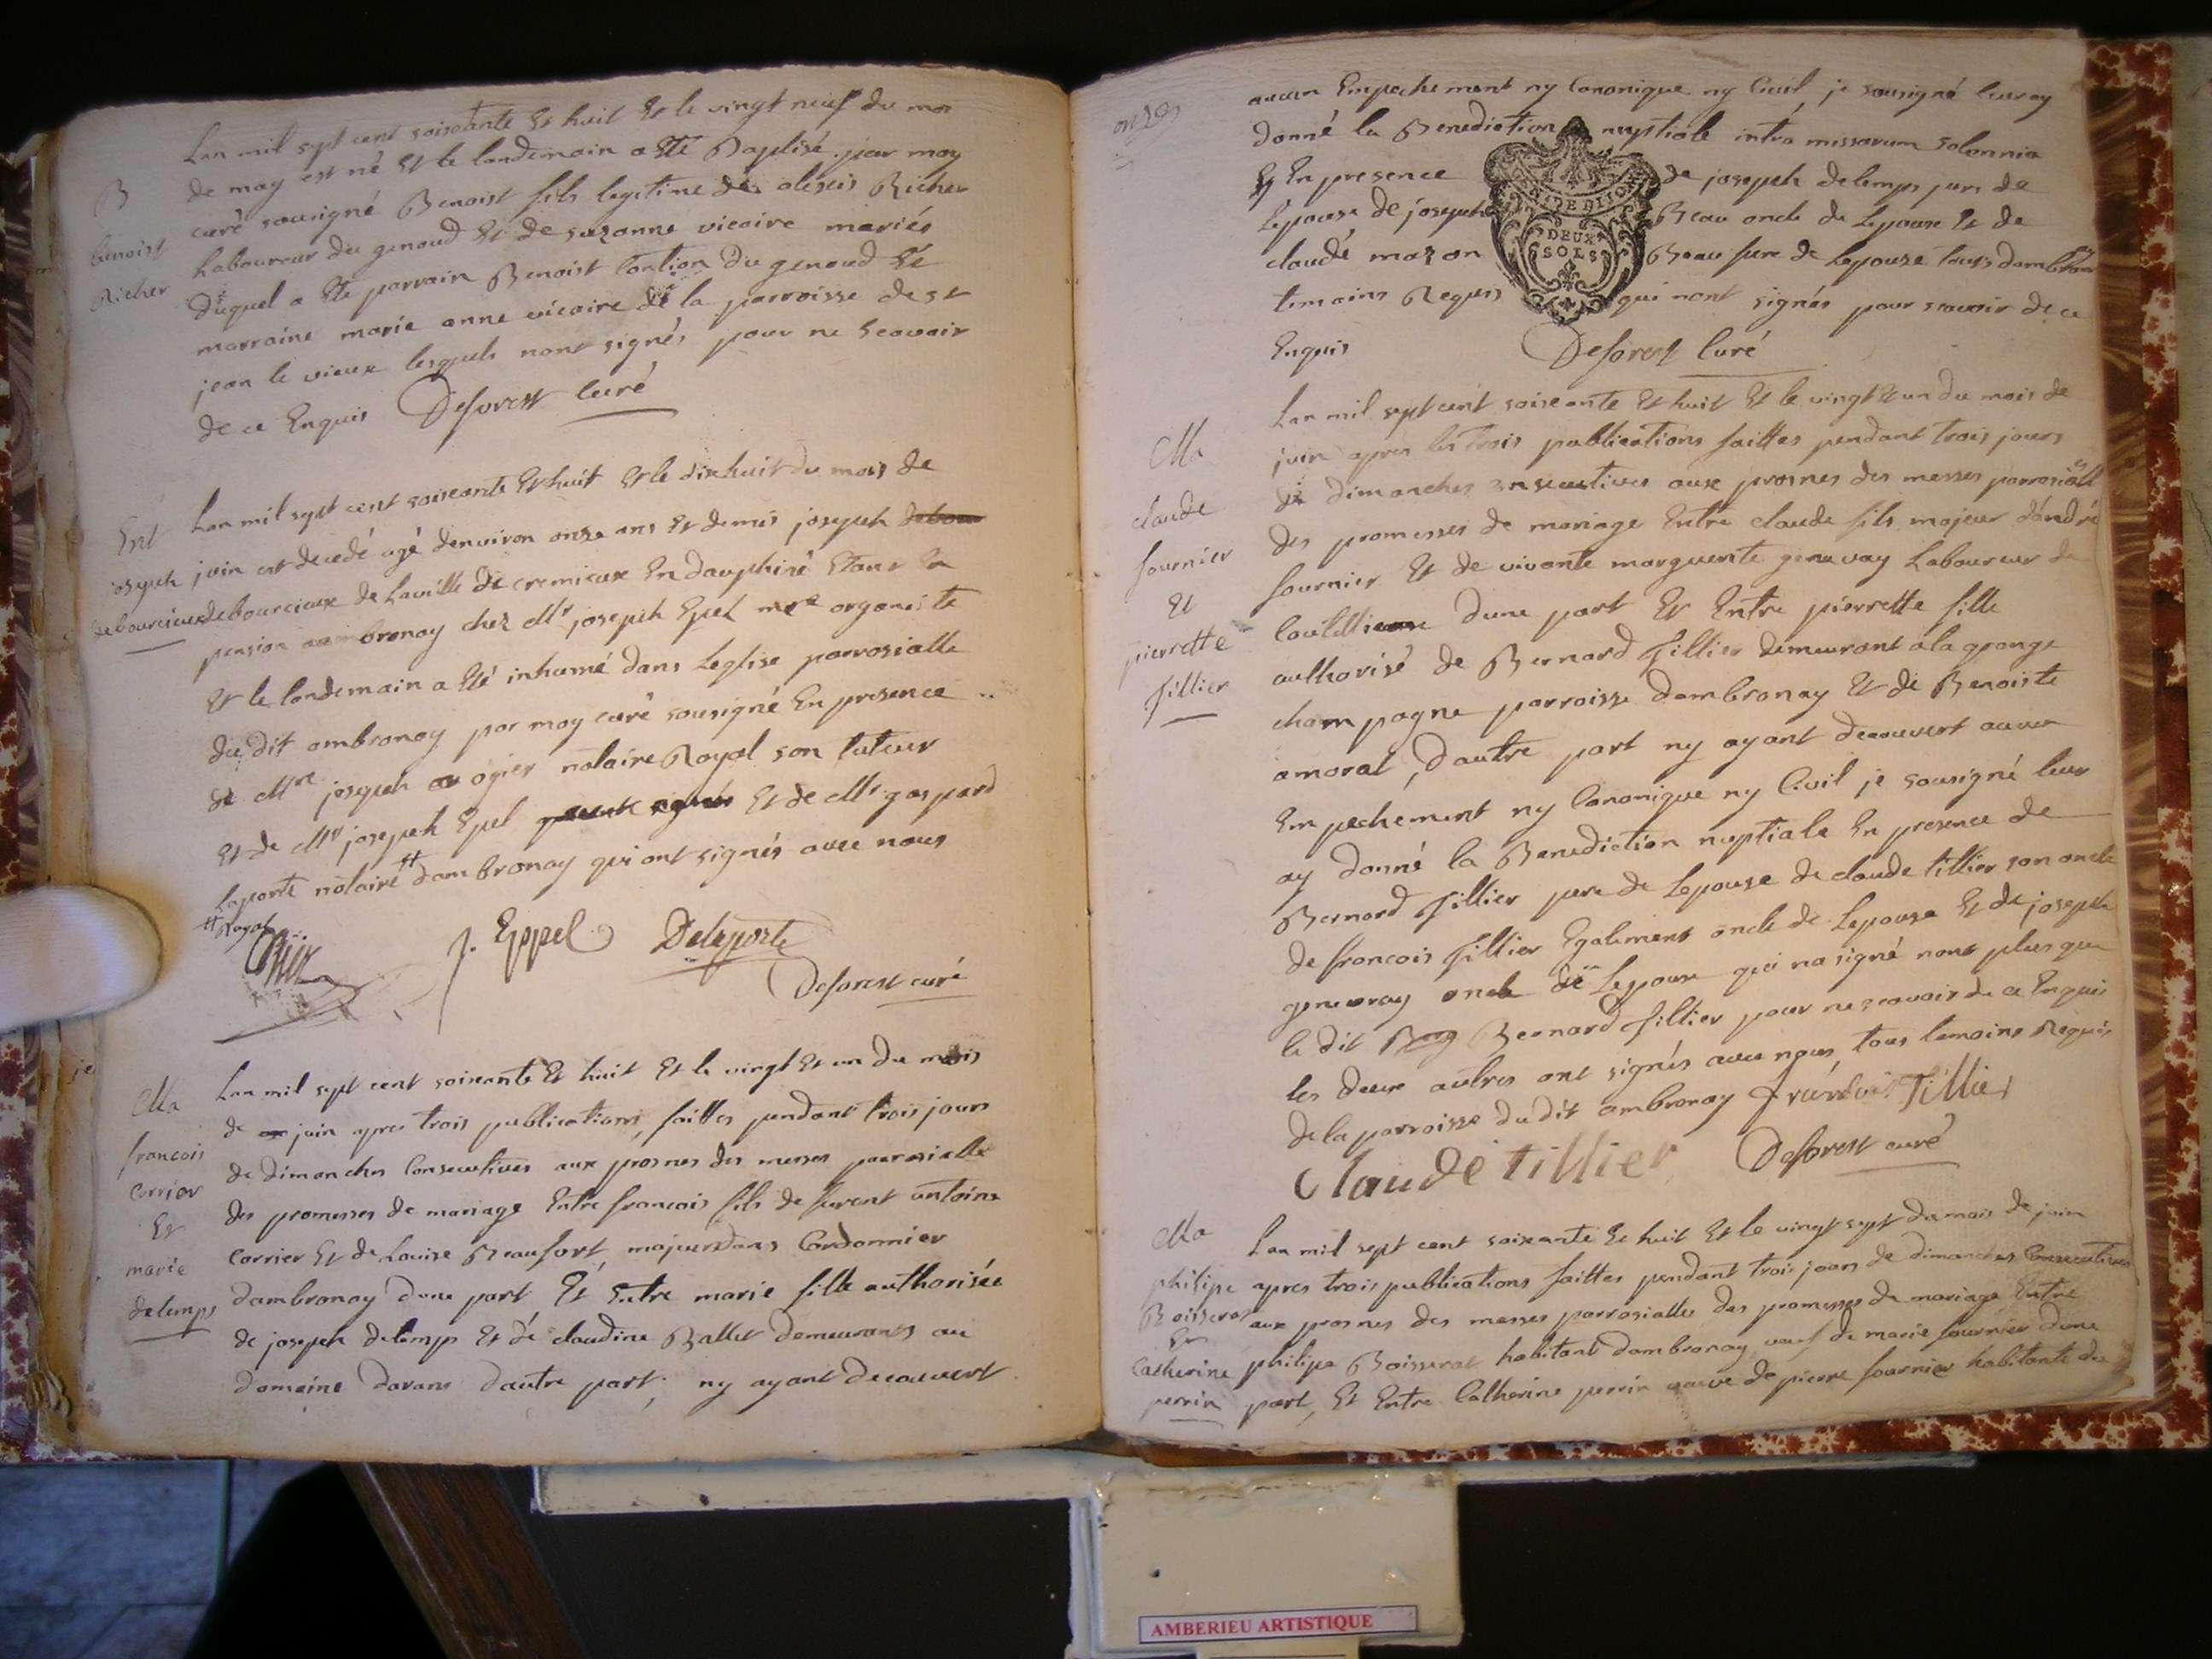 Lan mil sept cent soixante Et huit Et le vingt neuf du moi
de may est né Et le landemain a Eté Baptisé par moy
curé sousigné Benoist fils legitime de alexis Richer
laboureur du genoud Et de suzanne vicaire mariés
duquel a Ete parrain Benoist du genoud Et
marraine marie anne vicaire de la parroisse de st
jean le vieux lesquels nont signés pour ne Scavoir
de ce Enquis Deforest curé
B
benoist
Richer
Lan mil sept cent soixante Et huit Et le dixhuit du mois de
juin est decedé agé denviron onze ans Et demis joseph
debourcieux de Laville de cremieux En dauphiné Etant En
pension ambronay chez Mr joseph Epel me organiste
Et le landemain a Eté inhumé dans Leglise parrosialle
du dit ambronay par moy curé sousigné En presence
de Mre joseph ogier notaire Royal son tuteur
Et de Mr joseph Epel Et de Mr gaspard
Laporte notaire # dambronay qui ont signés avec nous
# Royal
Ent
joseph
debourcieux
J. Eppel Delaporte
Deforest curé
Lan mil sept cent soixante Et huit Et le vingt Et un du mois
de juin apres trois publications faittes pendant trois jours
de dimanches Consecutives aux prosnes des messes parrosialle
des promesses de mariage Entre francois fils de furent antoine
Corrier Et de Louise Beaufort, majeurs dans Cordonnier
dambronay dune part, Et Entre marie fille authorisée
de joseph delemps Et de claudine Ballet demeurants au
domaine davans dautre part; ny ayant decouvert
Ma
francois
Corrier
Et
marie
delemps
aucun Empechement ny Canonique ny Civil, je sousigné leur ay
donné la Benediction nuptiale intra missarum solonnia
Et En presence de joseph delemps pere de
Lepouse de joseph Beau oncle de Lepouse Et de
claude mazon Beau frere de Lepouse tous dambronay
temoins Requis qui nont signés pour scavoir de ce
Enquis Deforest Curé
DEUX
SOLS
Lan mil sept cent soixante Et huit Et le vingt Et un du mois de
juin apres les trois publications faittes pendant trois jours
de dimanches consecutives aux prosnes des messes parrosialles
des promesses de mariage Entre claude fils majeur dandré
fournier Et de vivante marguerite genevay Laboureur de
dune part Et Entre pierrette fille
authorisé de Bernard Tillier demeurant a la grange
champagne parroisse dambronay Et de Benoiste
amoral, dautre part ny ayant decouvert aucun
Empechement ny Canonique ny Civil je sousigné leur
ay donné la Benediction nuptiale En presence de
Bernard Tillier pere de Lepouse de claude tillier son oncle
de francois Tillier Egalement oncle de Lepouse Et de joseph
genevray oncle de Lepoux qui na signé nont plus que
le dit Bernard Tillier pour ne scavoir de ce Enquis
les deux autres ont signés avec nous, tous temoins Requis
de la parroisse du dit ambronay francois Tillier
Claude tillier Deforest curé
Ma
claude
fournier
Et
pierrette
Tillier
Lan mil sept cent soixante Et huit Et le vingt sept du mois de juin
apres trois publications faittes pendant trois jours de dimanches Consecutives
aux prosnes des messes parrosialles des promesses de mariage Entre
philipe Boisserat habitant dambronay veuf de marie fournier dune
part, Et Entre Catherine perrin veuve de pierre fournier habitante du
Ma
philipe
Boisserat
Et
Catherine
perrin
AMBERIEU ARTISTIQUE